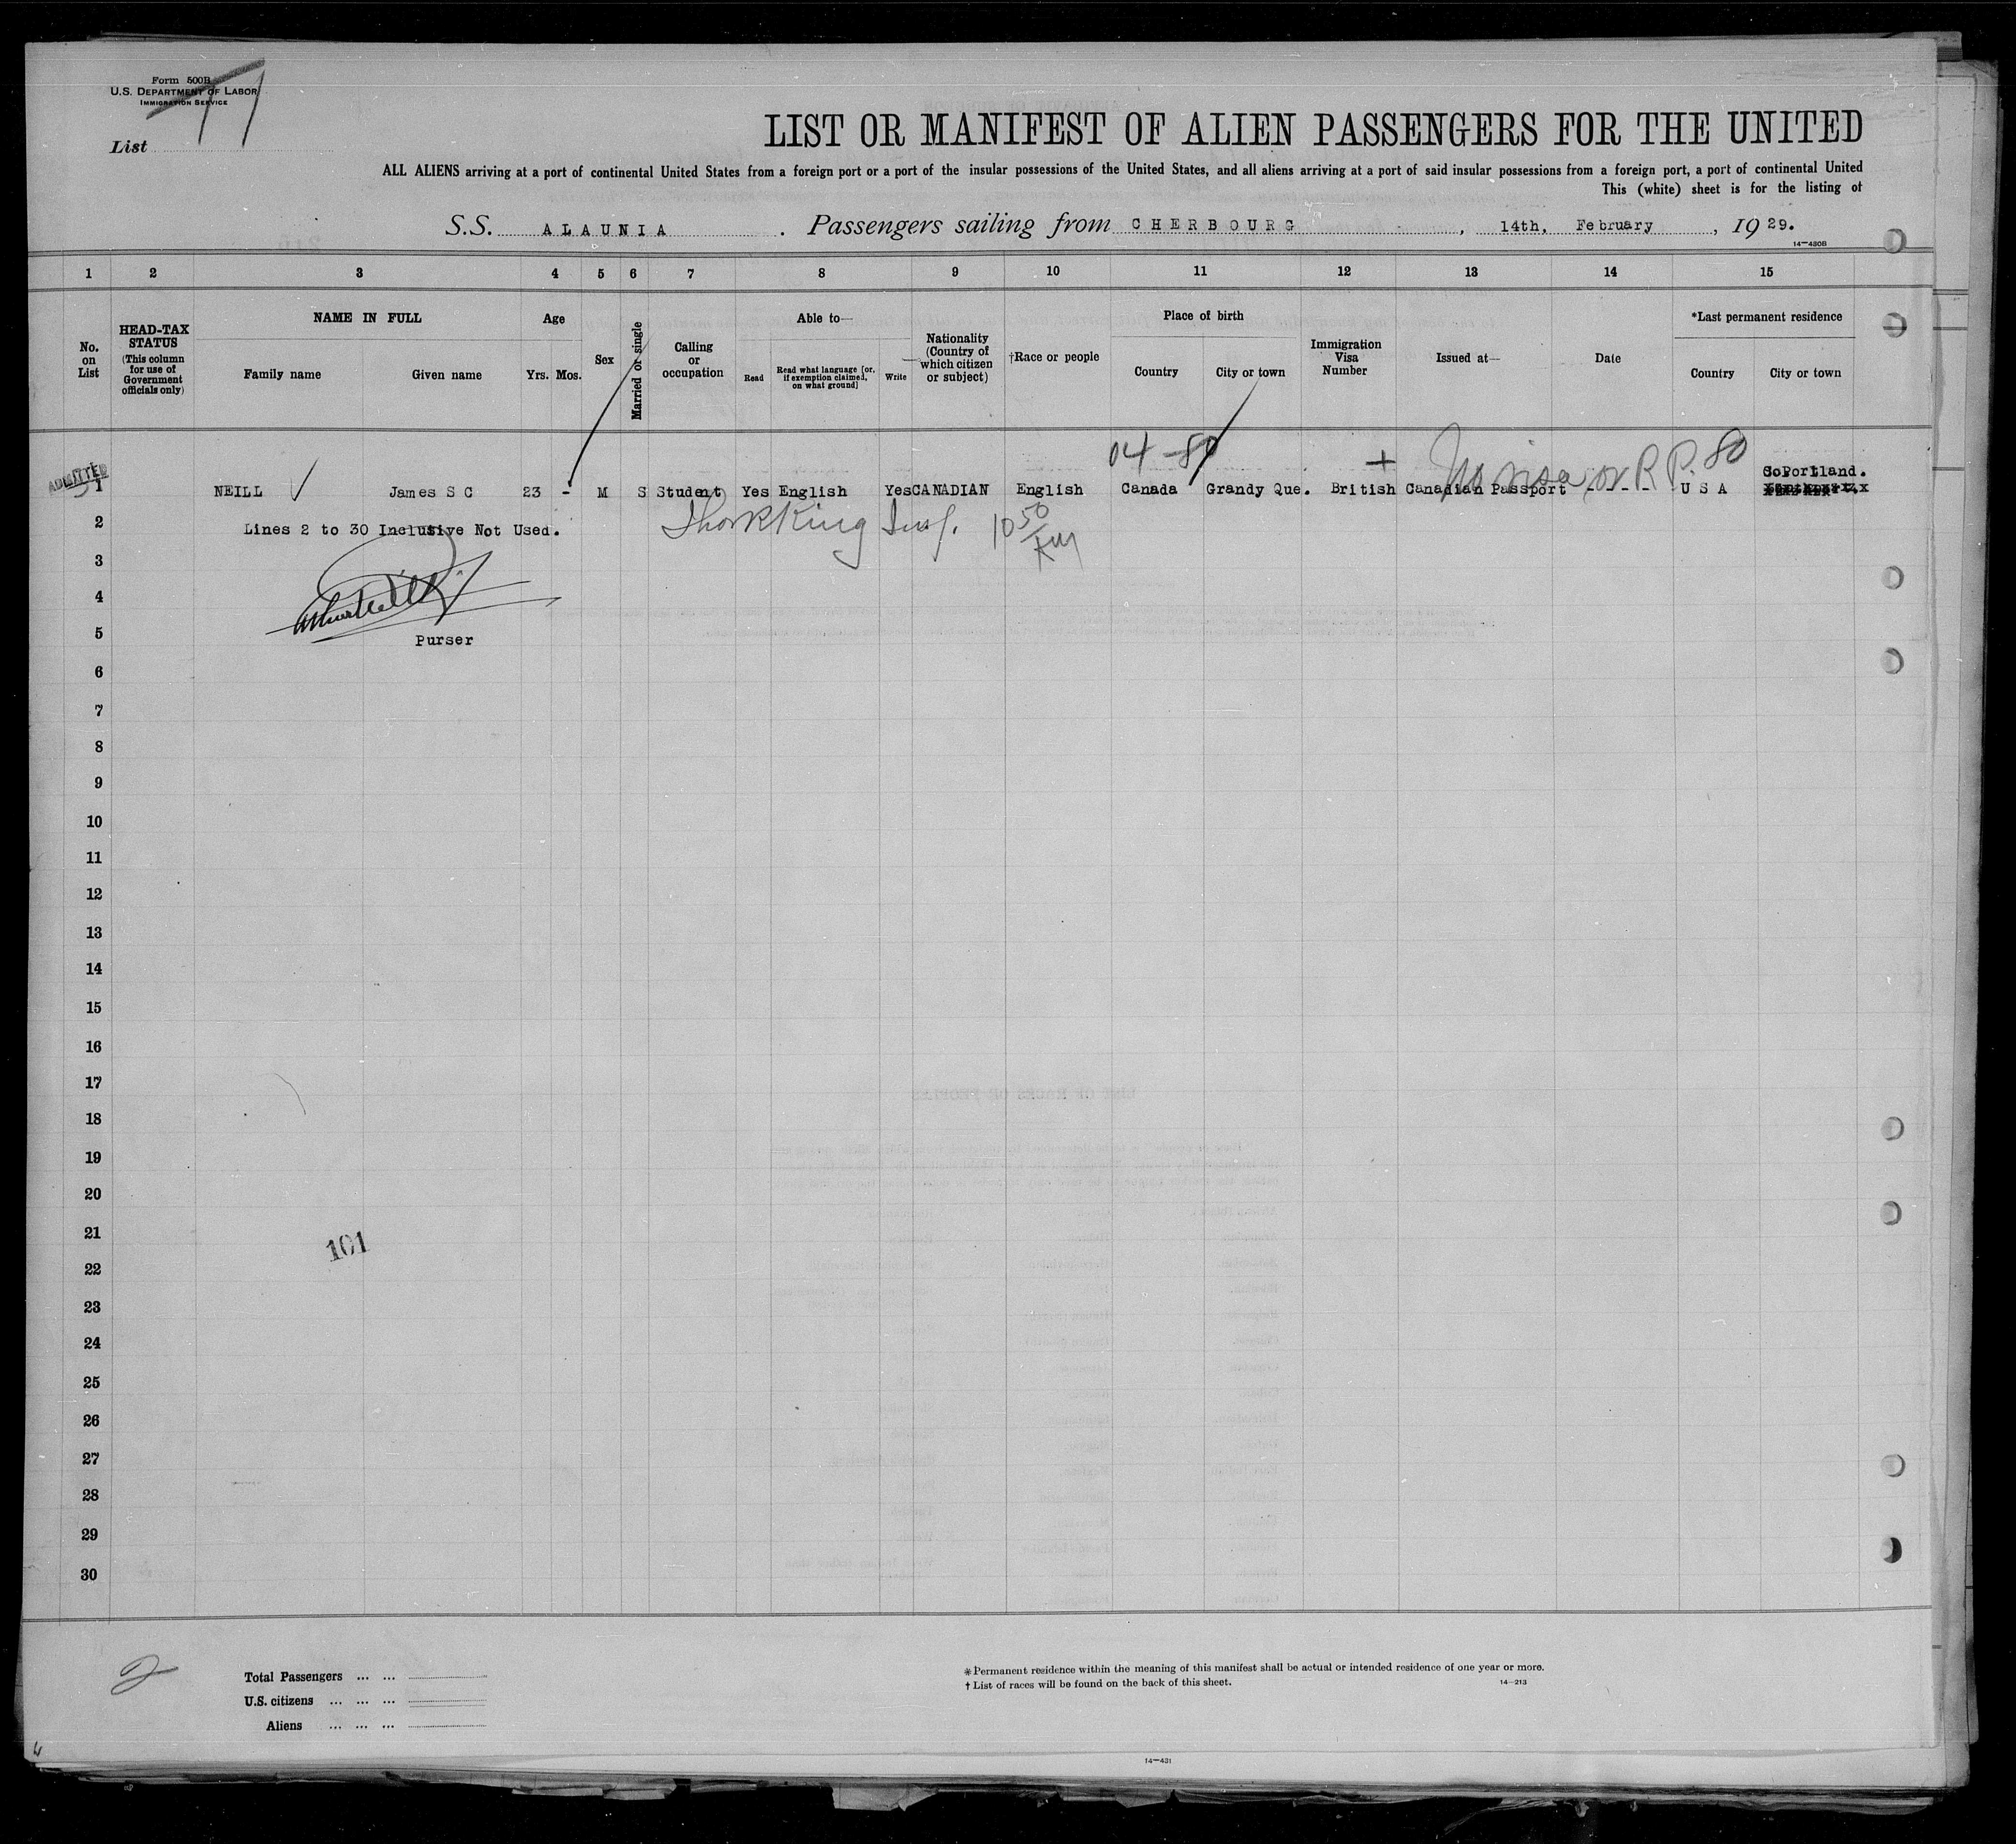 Form 500B
U.S. DEPARTMENT OF LABOR
IMMIGRATION SERVICE
List
LIST OR MANIFEST OF ALIEN PASSENGERS FOR THE UNITED
ALL ALIENS arriving at a port of continental United States from a foreign port or a port of the insular possessions of the United States, and all aliens arriving at a port of said insular possessions from a foreign port, a port of continental United
This (white) sheet is for the listing of
S.S. ALAUNIA. Passengers sailing from CHERBOURG, 14th, February, 1929.
14—430B
1 2 3 4 5 6 7 8 9 10 11 12 13 14 15
No. on List
HEAD-TAX STATUS (This column for use of Government officials only)
NAME IN FULL
Family name Given name
Age
Yrs. Mos.
Sex
Married or single
Calling or occupation
Able to—
Read
Read what language [or, if exemption claimed, on what ground]
Write
Nationality (Country of which citizen or subject)
†Race or people
Place of birth
Country City or town
Immigration Visa Number
Issued at—
Date
*Last permanent residence
Country City or town
04-80
No visa or R P. 80
SoPortland.
ADMITTED
1 NEILL James S C 23 - M S Student Yes English Yes CANADIAN English Canada Grandy Que. British Canadian Passport - - - - U S A
2 Lines 2 to 30 Inclusive Not Used.
King Insp. 10 50
3
4
5
Purser
6
7
8
9
10
11
12
13
14
15
16
17
18
19
20
21
101
22
23
24
25
26
27
28
29
30
2
Total Passengers ... ...
U.S. citizens ... ... ...
Aliens ... ... ...
* Permanent residence within the meaning of this manifest shall be actual or intended residence of one year or more.
† List of races will be found on the back of this sheet.
14—213
14—431